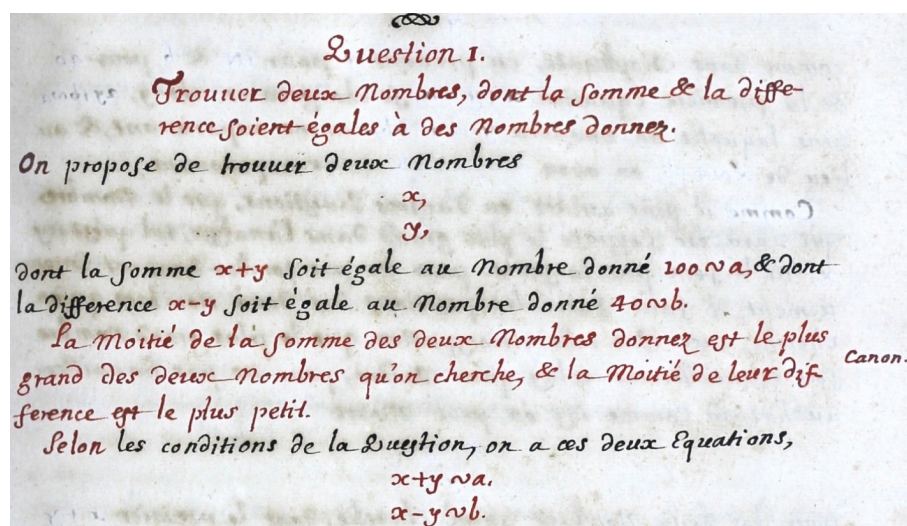 Question 1.
Trouuer deux Nombres, dont la somme & la diffe-
rence soient égales à des Nombres donnez.
On propose de trouuer deux Nombres
x,
y,
dont la somme x+y soit égale au Nombre donné 100 ∾ a, & dont
la difference x-y soit égale au Nombre donné 40 ∾ b.
La Moitié de la somme des deux Nombres donnez est le plus
grand des deux Nombres qu'on cherche, & la Moitié de leur dif
ference est le plus petit.
Canon.
Selon les conditions de la Question, on a ces deux Equations,
x+y ∾ a.
x-y ∾ b.